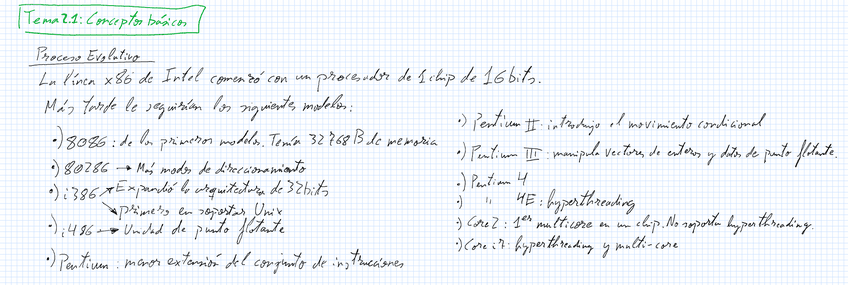 Tema 2.1: Conceptos básicos
Proceso Evolutivo
La línea x86 de Intel comenzó con un procesador de 1 chip de 16 bits.
Más tarde le seguirían los siguientes modelos:
•) 8086: de los primeros modelos. Tenía 32768 B de memoria
•) 80286 → Más modos de direccionamiento
•) i386 → Expandió la arquitectura de 32 bits
→ primero en soportar Unix
•) i486 → Unidad de punto flotante
•) Pentium: menor extensión del conjunto de instrucciones
•) Pentium II: introdujo el movimiento condicional
•) Pentium III: manipula vectores de enteros y datos de punto flotante.
•) Pentium 4
• " 4E: hyperthreading
•) Core 2: 1er multicore en un chip. No soporta hyperthreading.
•) Core i7: hyperthreading y multi-core